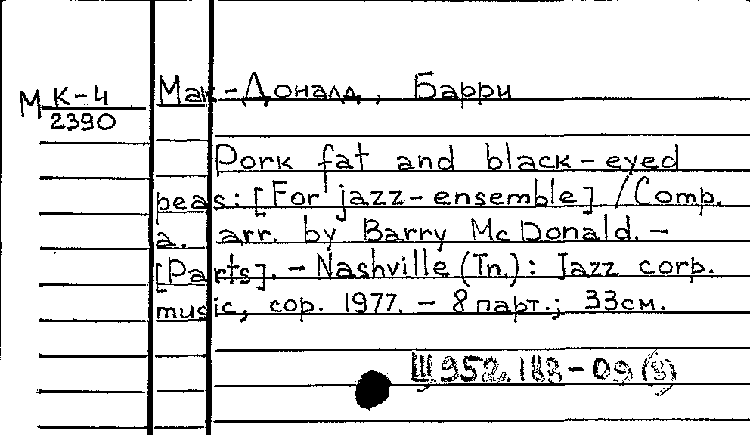 М К-4
2390
Мак-Доналд, Барри
Pork fat and black-eyed
peas: [For jazz-ensemble] / Comp.
a. arr. by Barry McDonald. –
[Parts]. – Nashville (Tn.): Jazz corp.
music, cop. 1977. – 8 парт.; 33см.
Щ952.188-09(8)